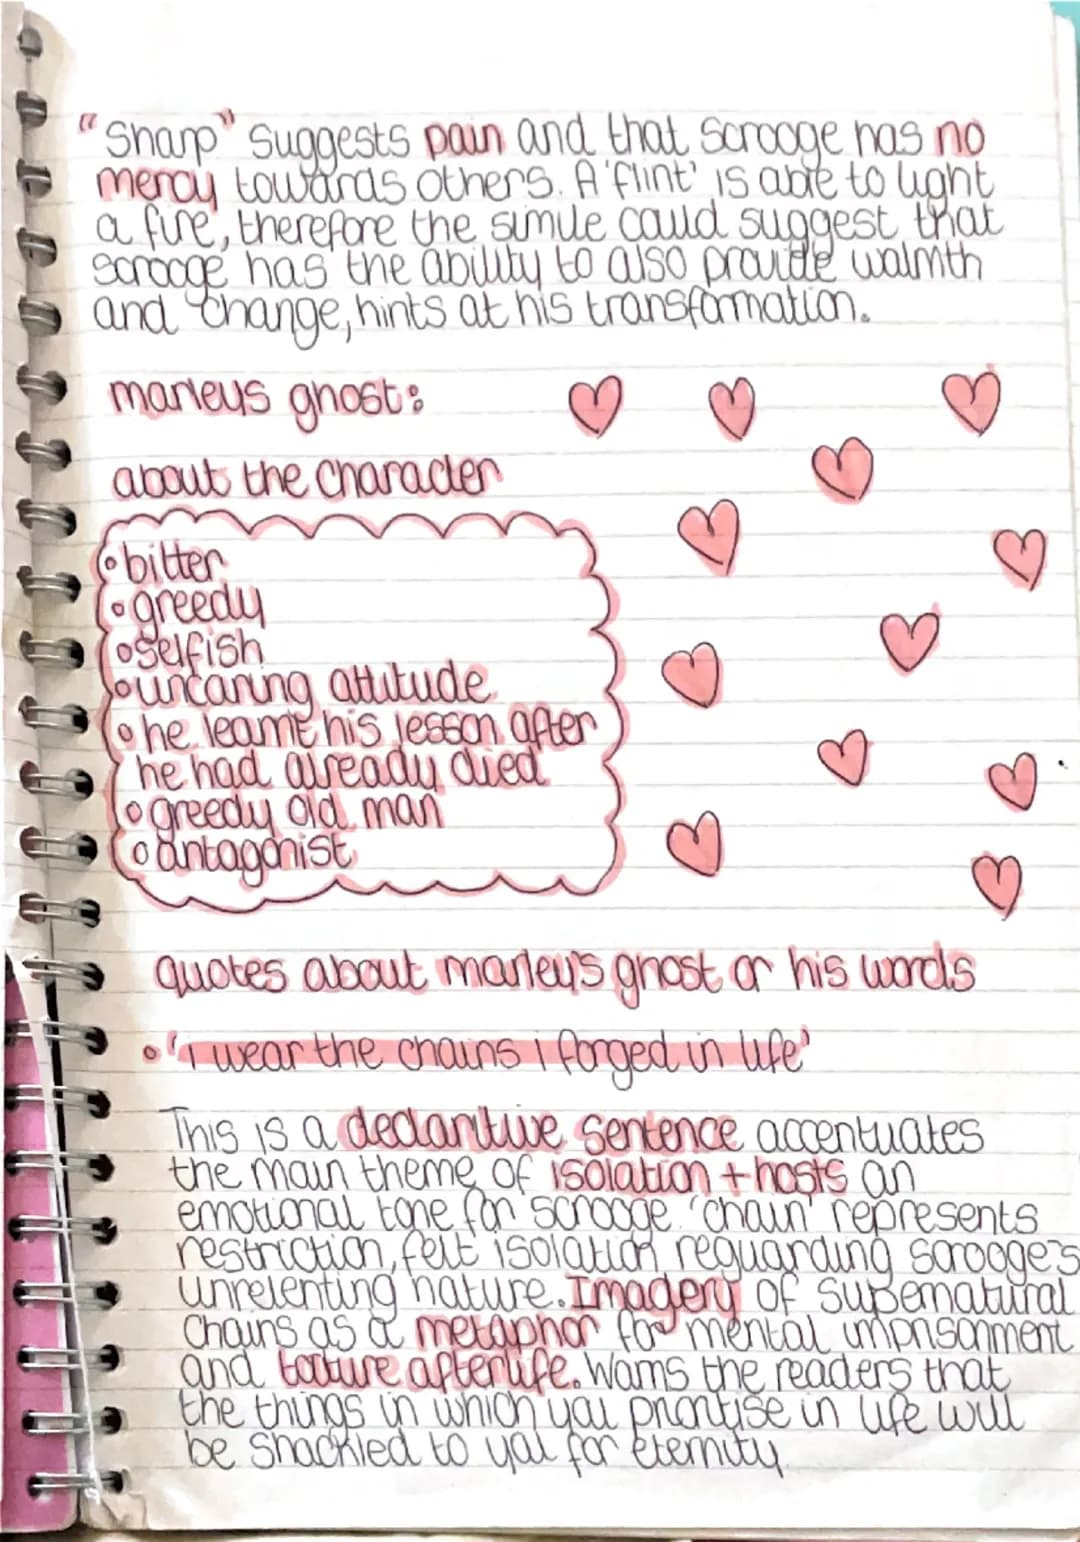 "Sharp" suggests pain and that Scrooge has no
mercy towards others. A 'flint' is able to light
a fire, therefore the simile could suggest that
scrooge has the ability to also provide walmth
and change, hints at his transformation.
marleys ghost:
about the character
• bitter
• greedy
• selfish
• uncaring attitude
• he learnt his lesson after
he had already died
• greedy old man
• antagonist
quotes about marley's ghost or his words
• 'i wear the chains i forged in life'
This is a declaritive sentence accentuates
the main theme of isolation + hosts an
emotional tone for scrooge. 'chain' represents
restriction, felt isolation reguarding scrooge's
unrelenting nature. Imagery of supernatural
chains as a metaphor for mental imprisonment
and torture afterlife. Warns the readers that
the things in which you prioritise in life will
be shackled to you for eternity.